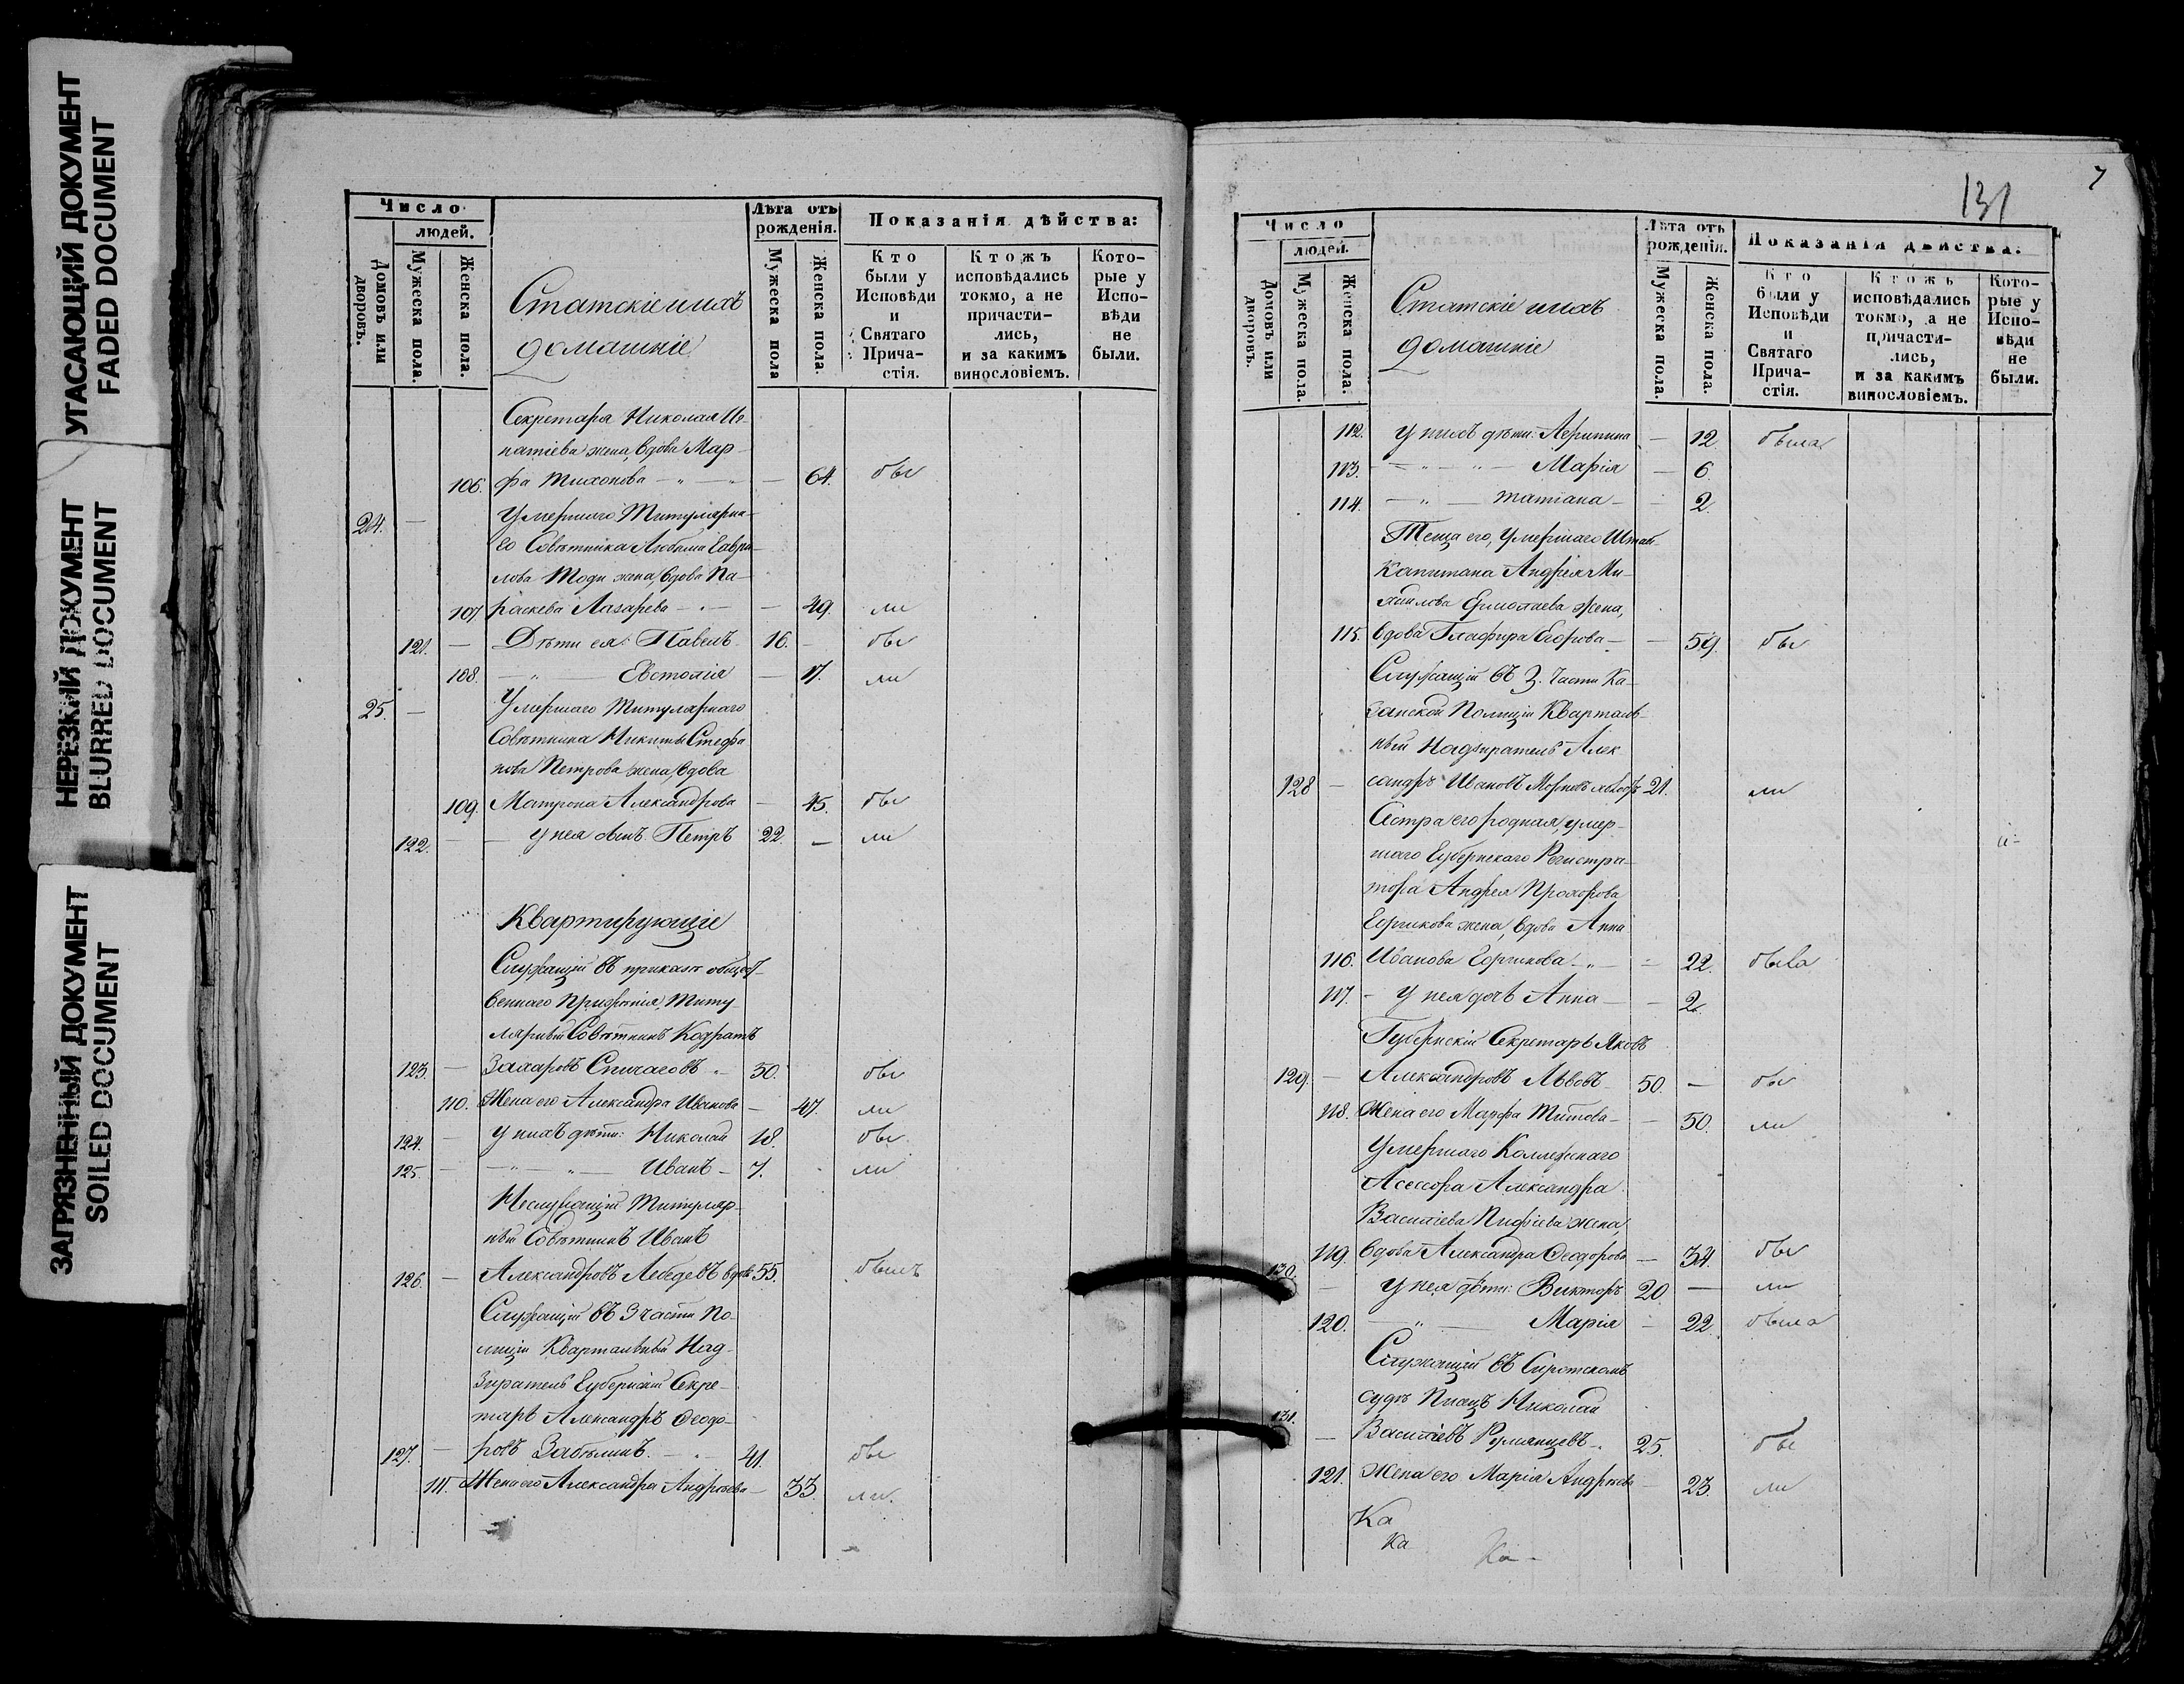 УГАСАЮЩИЙ ДОКУМЕНТ
FADED DOCUMENT
НЕРЕЗКИЙ ДОКУМЕНТ
BLURRED DOCUMENT
ЗАГРЯЗНЕННЫЙ ДОКУМЕНТ
SOILED DOCUMENT
Число
людей.
Домовъ или дворовъ.
Мужеска пола.
Женска пола.
Статскіе и ихъ
домашніе
Лѣта отъ рожденія.
Мужеска пола
Женска пола.
Показанія дѣйства:
Кто были у Исповѣди и Святаго Прича-стія.
Ктожъ исповѣдались токмо, а не причасти-лись, и за какимъ винословіемъ.
Кото-рые у Испо-вѣди не были.
Секретаря Николая Иг-
натіева жена, вдова Мар-
106. фа Тихонова — 64. бы
24. — Умершаго Титулярна-
го Совѣтника Любима Гаври-
лова жена, вдова Па-
107. раскева Лазарева — 49. ли
121. — Дѣти ея: Павелъ 16. — бы
108. — Евстолія — 17. ли
25. — Умершаго Титулярнаго
Совѣтника Никиты Стефа
нова Петрова жена, вдова
109. Матрона Александрова — 45. бы
122. — у нея сынъ Петръ 22. — ли
Квартирующіе
Служащій въ приказѣ общест-
веннаго Призрѣнія, Титу
лярный Совѣтникъ Кодратъ
123. — Захаровъ 50. бы
110. Жена его Александра Иванова — 47. ли
124. — у нихъ дѣти: Николай 18. бы
125. — Иванъ — 7. ли
Неслужащій Титуляр-
ный Совѣтникъ Иванъ
126. — Александровъ Лебедевъ вдовъ 55. былъ
Служащій въ 3 части По-
лиціи Квартальный Над-
зиратель Губернскій Секре-
тарь Александръ Ѳеодо-
127. — ровъ Забѣлинъ. — 41. бы
111. Жена его Александра Андреева — 33. ли.
131
7
Число
людей.
Домовъ или дворовъ.
Мужеска пола.
Женска пола.
Статскіе и ихъ
домашніе
Лѣта отъ рожденія.
Мужеска пола.
Женска пола.
Показанія дѣйства:
Кто были у Исповѣди и Святаго Прича-стія.
Ктожъ исповѣдались токмо, а не причасти-лись, и за какимъ винословіемъ.
Кото-рые у Испо-вѣди не были.
112. у нихъ дѣти: — 12. была
113. — Марія — 6.
114. — Татіана — 2.
Теща его, Умершаго Штабъ-
Капитана Андрея Ми-
хаилова Ермолаева жена,
115. вдова Глафира Егорова — 59. бы
Служащій въ 3. Части Ка-
занской Полиціи Кварталь-
ный Надзиратель Алек
128 — сандръ Ивановъ 21. ли
Сестра его родная, умер-
шаго Губернскаго Регистра-
тора Андрея Прохорова
жена, вдова Анна
116. Иванова — 22. была
117. — У нея дочь Анна — 2.
Губернскій Секретарь Яковъ
129. — Александровъ Львовъ 50. — бы
118. Жена его Марфа Титова — 50. ли
Умершаго Коллежскаго
Асессора Александра
Василіева жена,
119. вдова Александра Ѳеодорова — 34. бы
130. — У нея дѣти: Викторъ 20. — ли
120. — Марія — 22. была
Служащій въ Сиротскомъ
судѣ Писецъ Николай
131. — Василіевъ Румянцевъ 25. бы
121. Жена его Марія Андреева — 23. ли
Ка
Ка
Ка-